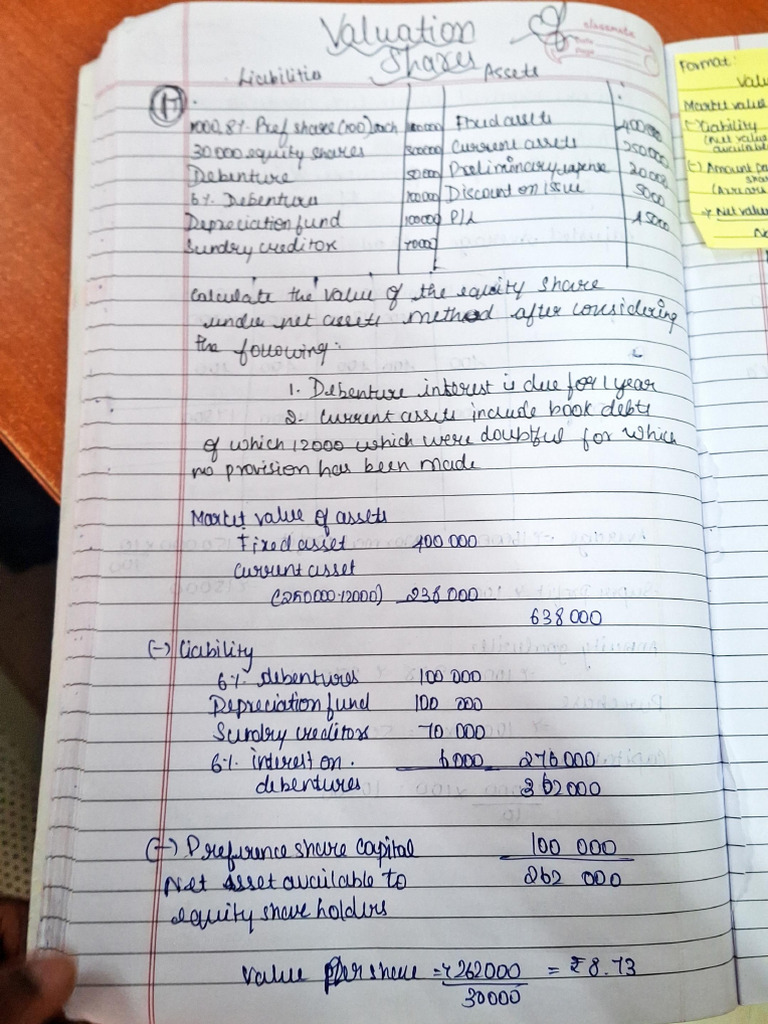 Valuation
Shares
classmate
Date
Page
Liabilities Assets
17
1000, 8% Pref share (100) each 100000 Fixed assets 400000
30000 equity shares 300000 Current assets 250000
Debenture 50000 Preliminary expense 20000
6% Debenture 100000 Discount on issue 5000
Depreciation fund 100000 P/L 45000
Sundry creditor 70000
Calculate the value of the equity share
under net assets method after considering
the following:
1. Debenture interest is due for 1 year
2. Current assets include book debts
of which 12000 which were doubtful for which
no provision has been made
Market value of assets
Fixed asset 400 000
Current asset
(250000-12000) 238 000
638 000
(-) Liability
6% debentures 100 000
Depreciation fund 100 000
Sundry creditors 70 000
6% interest on 6000 276000
debentures 362000
(-) Preference share capital 100 000
Net Asset available to 262 000
equity share holders
Value per share = ₹ 262000 = ₹ 8.73
30000
Format:
Market value
(-) Liability
(Net value
available
(-) Amount
(Arrears
Net value